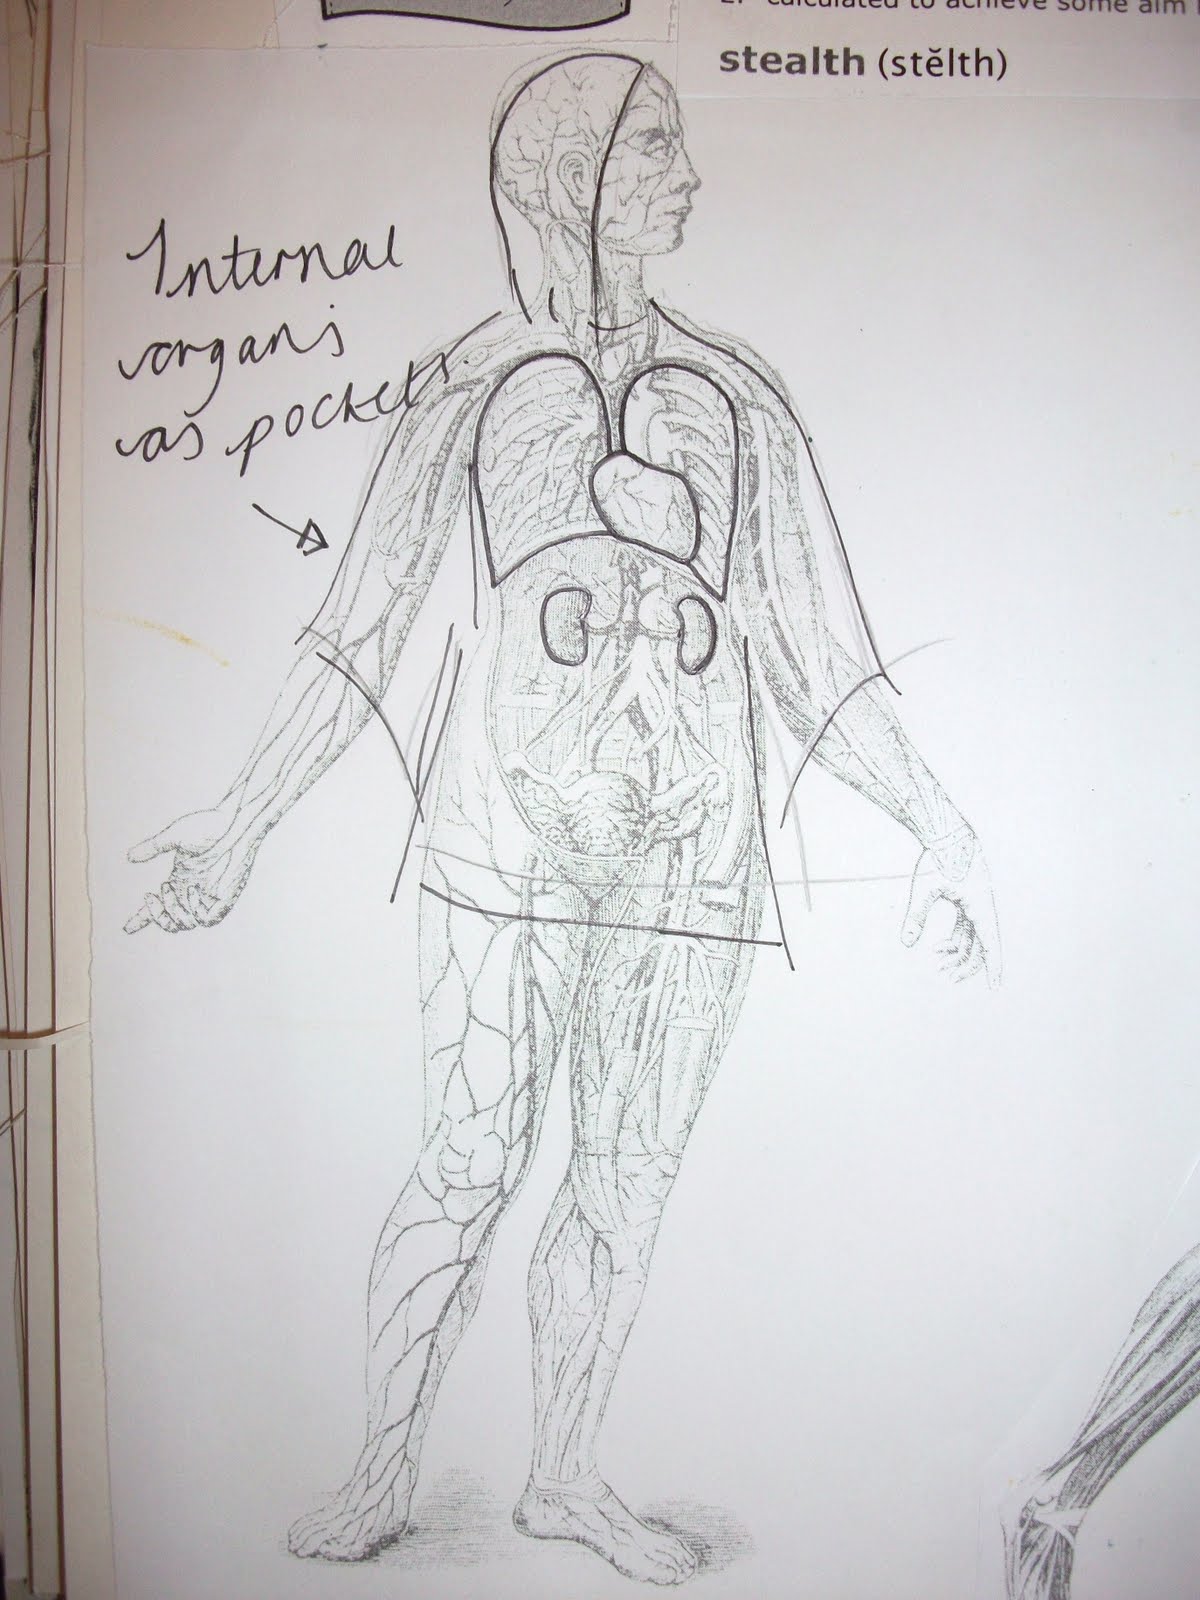 2. calculated to achieve some aim
stealth (stĕlth)
Internal
organs
as pockets.